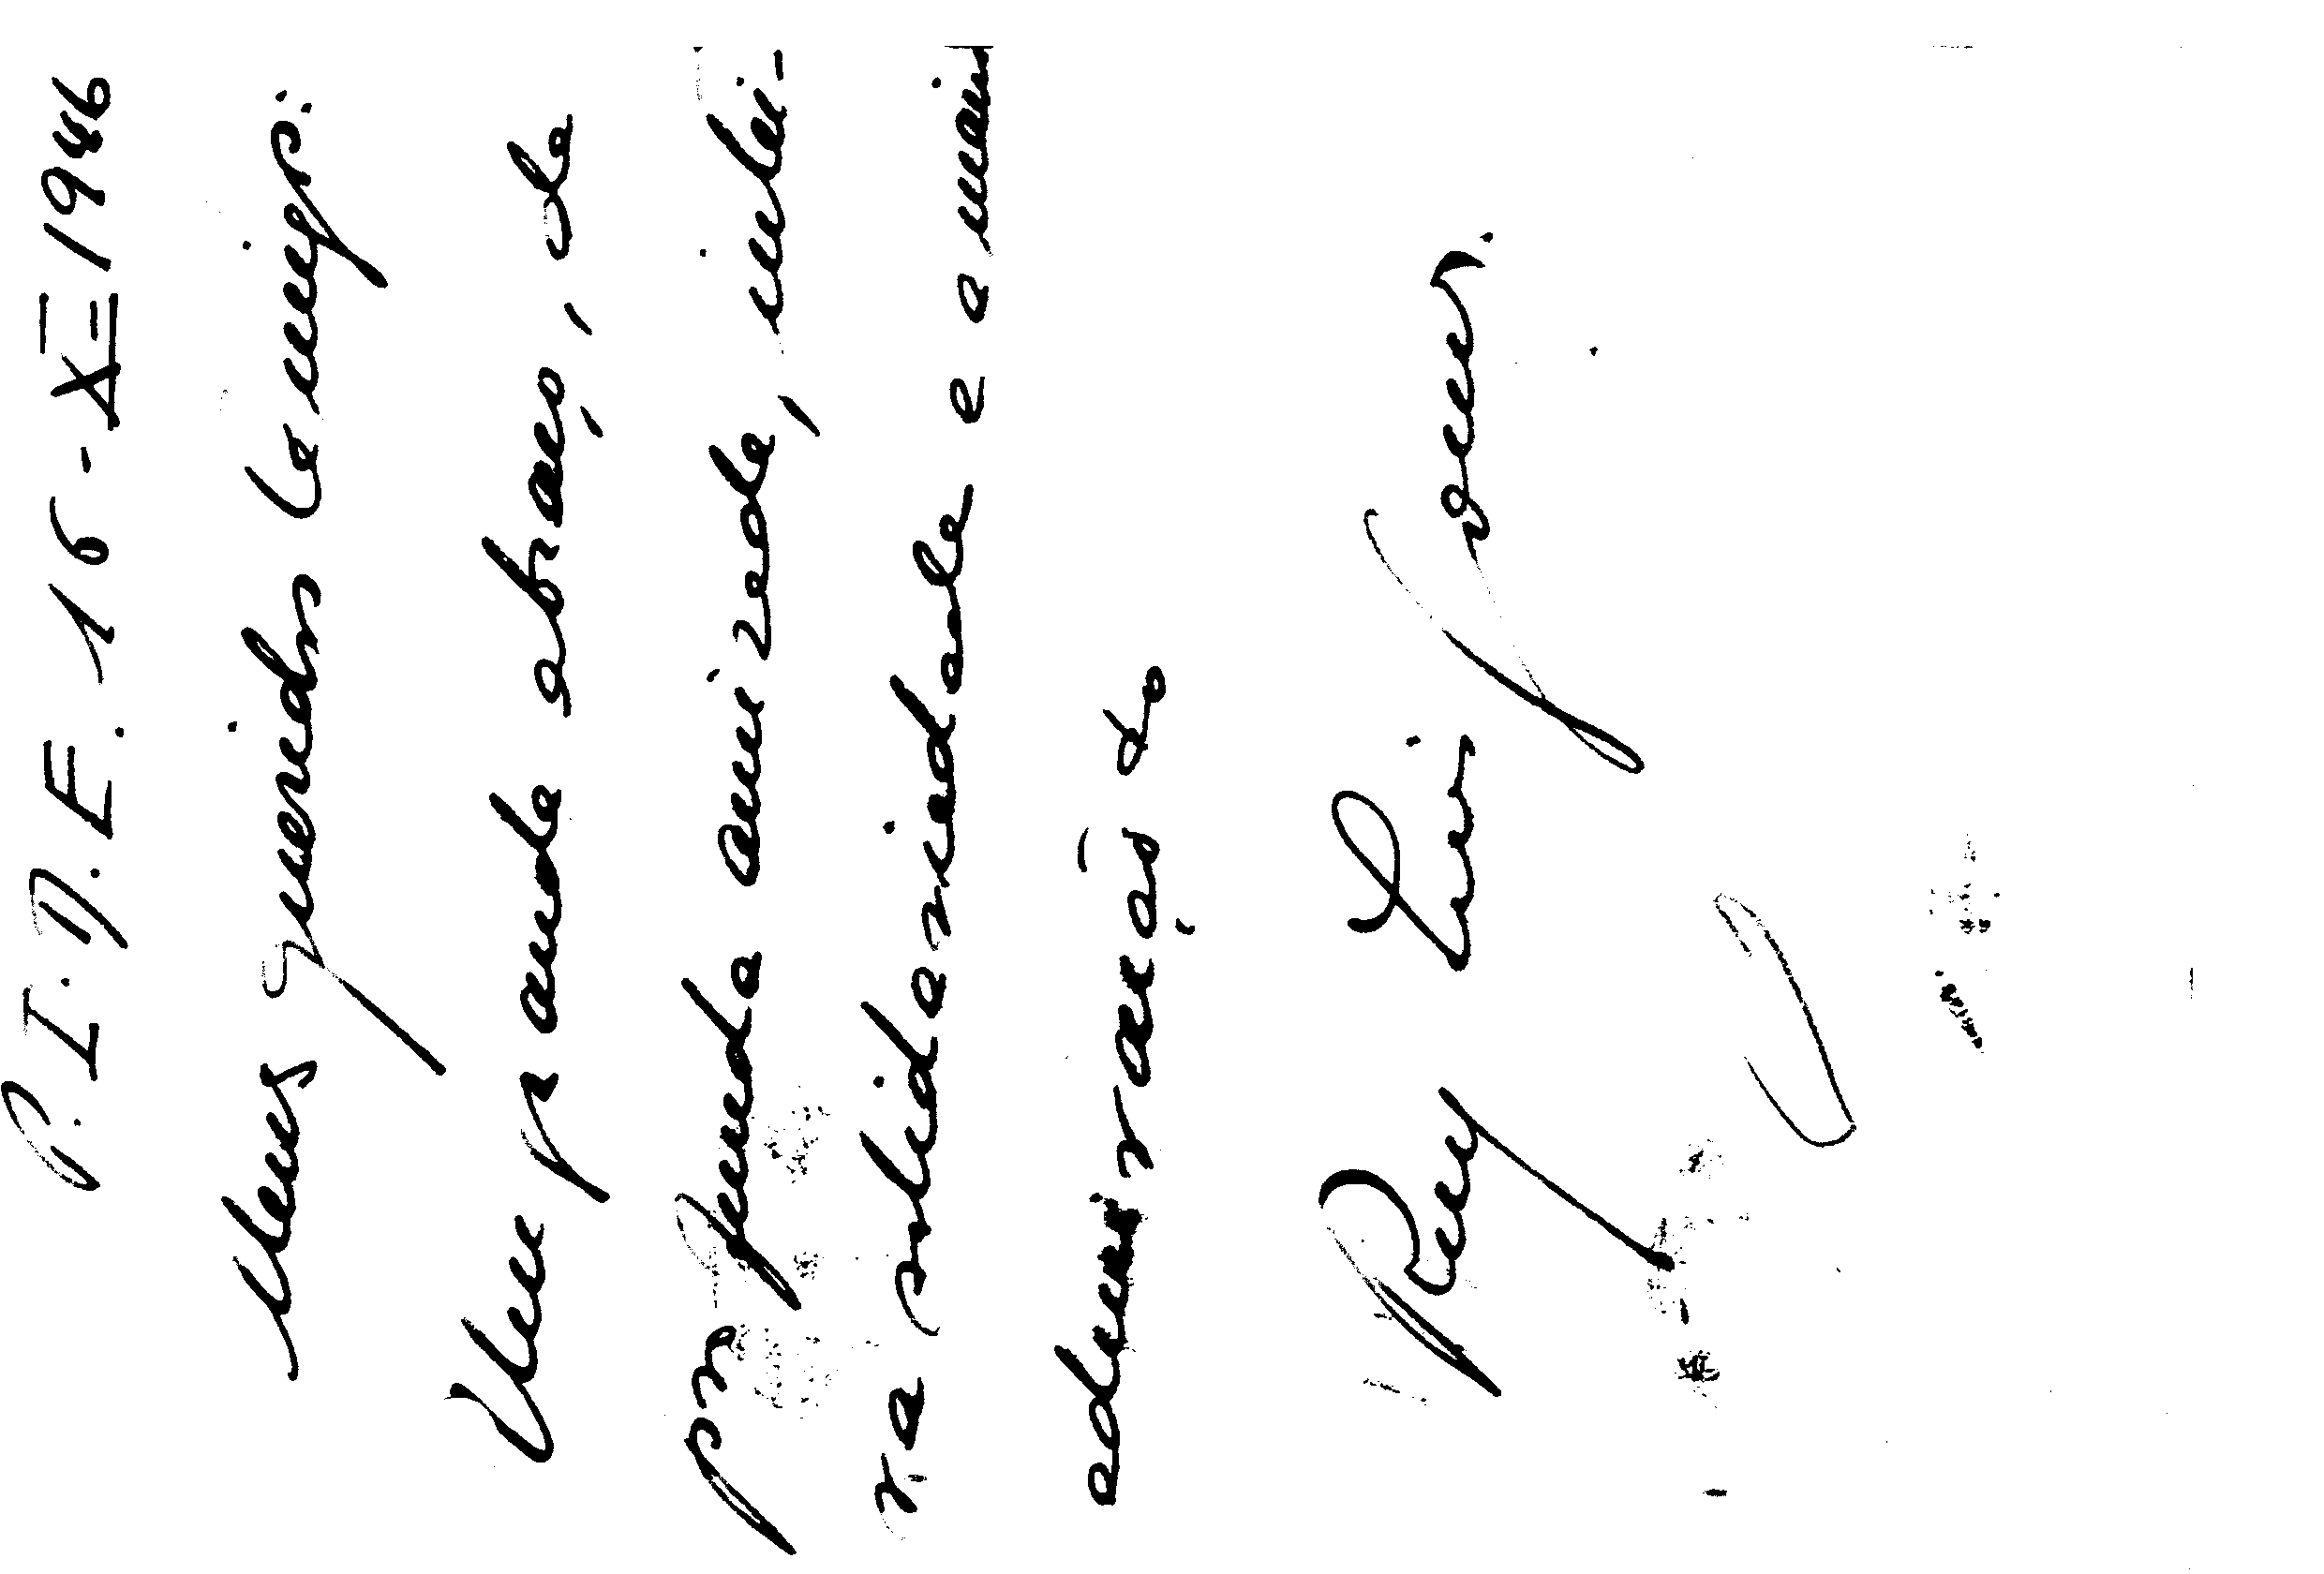 P. I. D. E. 16 - XI - 1946
Meus queridos
Um grande abraço, de
profunda amizade, intei-
ra solidariedade e a mais
admiração do
Ruy Luis Gomes.